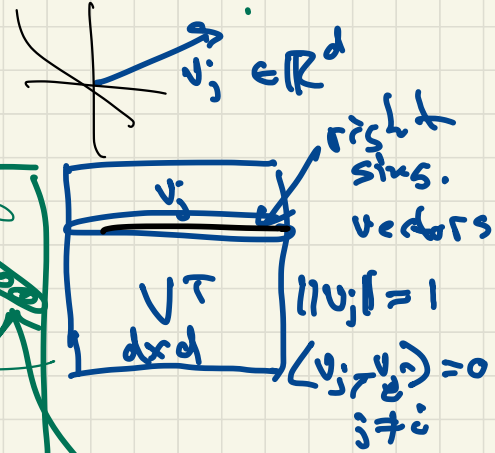 v_j ∈ ℝ^d
right
sing.
vectors
v_j
V^T
d×d
||v_j|| = 1
⟨v_j, v_i⟩ = 0
j ≠ i